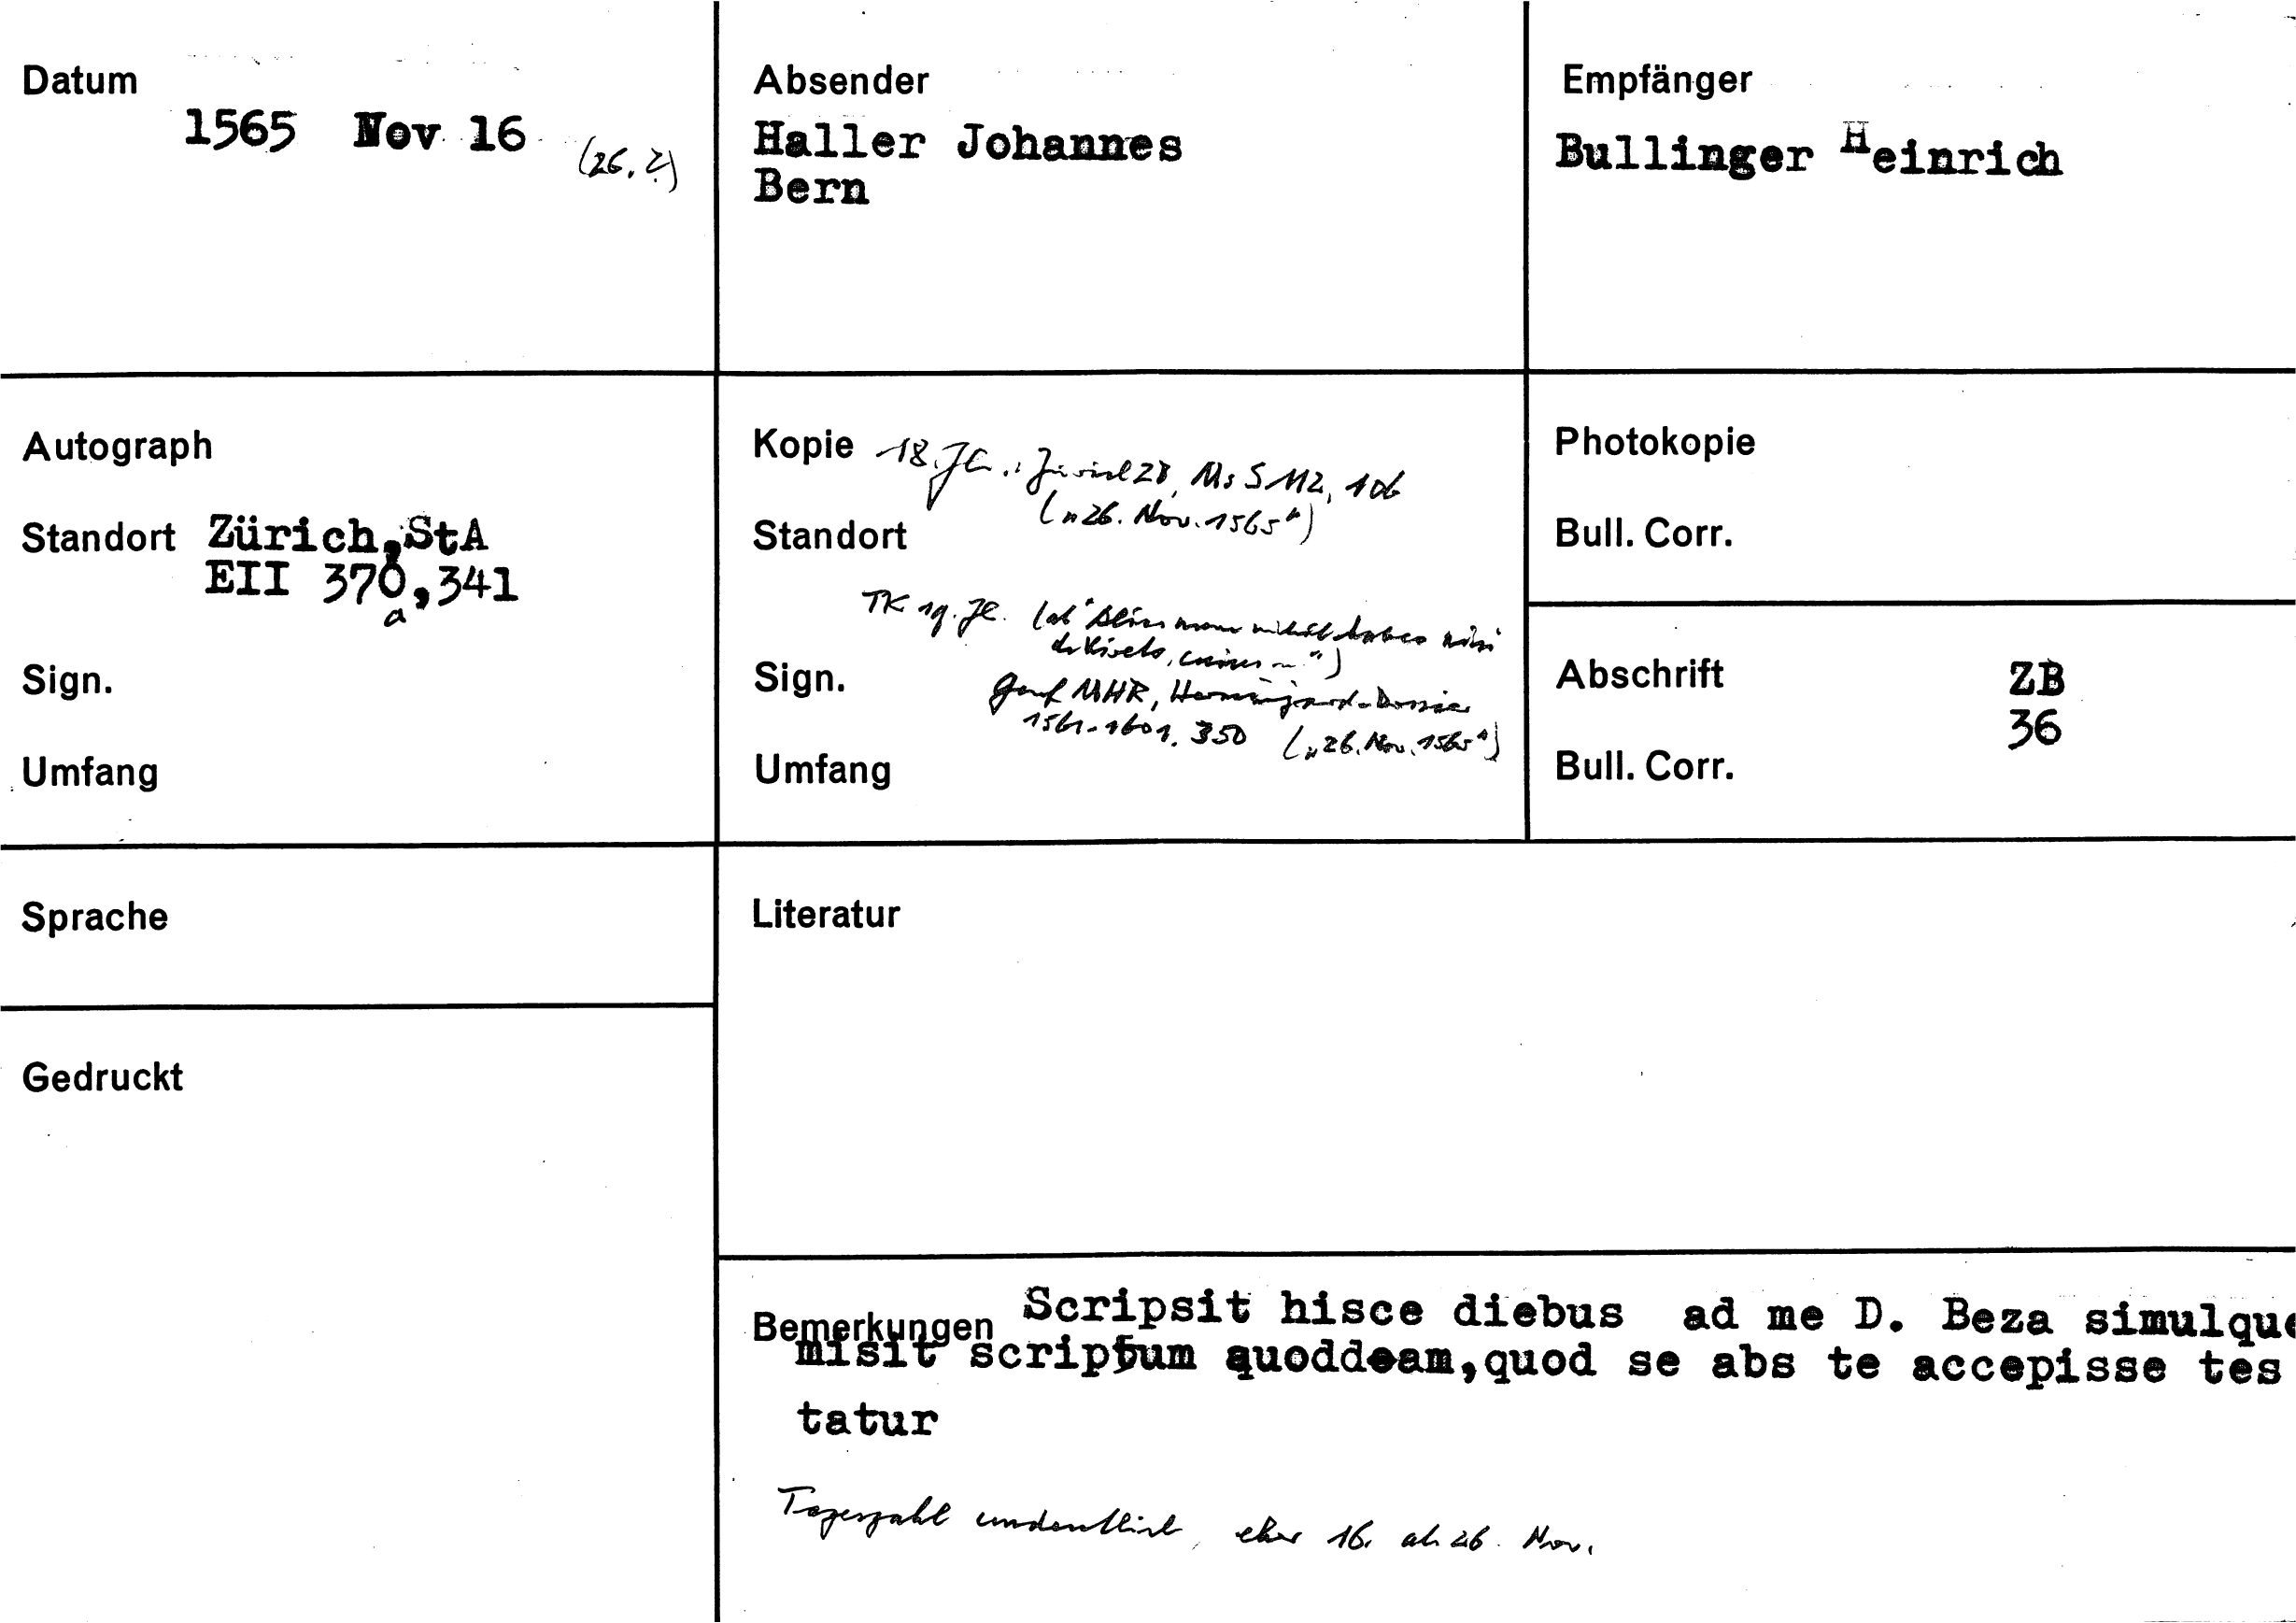 Datum
1565 Nov 16 (26.?)
Absender
Haller Johannes
Bern
Empfänger
Bullinger Heinrich
Autograph
Standort Zürich,StA
EII 370,341
a
Sign.
Umfang
Kopie 18. Jh.: Zürich ZB, Ms S 112, 106
("26. Nov. 1565")
Standort
TK 19. Jh. (ab "Alias non mihi habes nisi
Sign.
Genf MHR, Herminjard-Dossier
1561-1601, 350 ("26. Nov. 1565")
Umfang
Photokopie
Bull. Corr.
Abschrift ZB
36
Bull. Corr.
Sprache
Literatur
Gedruckt
Bemerkungen Scripsit hisce diebus ad me D. Beza simulque
misit scriptum quoddeam,quod se abs te accepisse tes
tatur
Tageszahl undeutlich, eher 16. als 26. Nov.